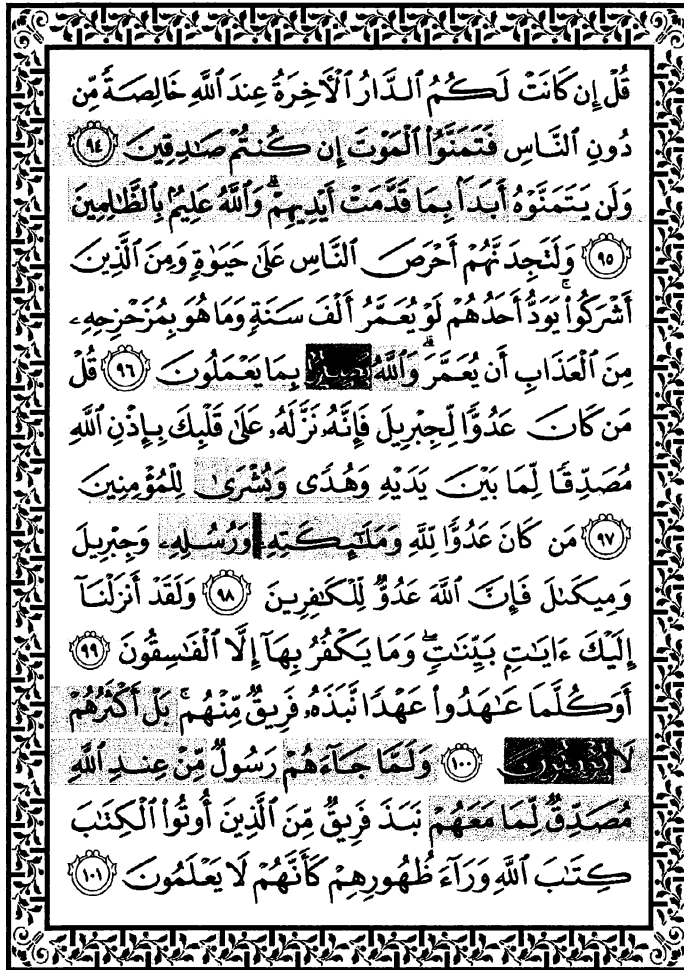 قُلْ إِن كَانَتْ لَكُمُ الدَّارُ الْآخِرَةُ عِندَ اللَّهِ خَالِصَةً مِّن
دُونِ النَّاسِ فَتَمَنَّوُا الْمَوْتَ إِن كُنتُمْ صَادِقِينَ ٩٤
وَلَن يَتَمَنَّوْهُ أَبَدًا بِمَا قَدَّمَتْ أَيْدِيهِمْ ۗ وَاللَّهُ عَلِيمٌ بِالظَّالِمِينَ
٩٥ وَلَتَجِدَنَّهُمْ أَحْرَصَ النَّاسِ عَلَىٰ حَيَوٰةٍ وَمِنَ الَّذِينَ
أَشْرَكُوا ۚ يَوَدُّ أَحَدُهُمْ لَوْ يُعَمَّرُ أَلْفَ سَنَةٍ وَمَا هُوَ بِمُزَحْزِحِهِ
مِنَ الْعَذَابِ أَن يُعَمَّرَ ۗ وَاللَّهُ بَصِيرٌ بِمَا يَعْمَلُونَ ٩٦ قُلْ
مَن كَانَ عَدُوًّا لِّجِبْرِيلَ فَإِنَّهُ نَزَّلَهُ عَلَىٰ قَلْبِكَ بِإِذْنِ اللَّهِ
مُصَدِّقًا لِّمَا بَيْنَ يَدَيْهِ وَهُدًى وَبُشْرَىٰ لِلْمُؤْمِنِينَ
٩٧ مَن كَانَ عَدُوًّا لِّلَّهِ وَمَلَٰئِكَتِهِ وَرُسُلِهِ وَجِبْرِيلَ
وَمِيكَىٰلَ فَإِنَّ اللَّهَ عَدُوٌّ لِّلْكَٰفِرِينَ ٩٨ وَلَقَدْ أَنزَلْنَا
إِلَيْكَ ءَايَٰتٍ بَيِّنَٰتٍ ۖ وَمَا يَكْفُرُ بِهَا إِلَّا الْفَٰسِقُونَ ٩٩
أَوَكُلَّمَا عَٰهَدُوا عَهْدًا نَّبَذَهُ فَرِيقٌ مِّنْهُم ۚ بَلْ أَكْثَرُهُمْ
لَا يُؤْمِنُونَ ١٠٠ وَلَمَّا جَاءَهُمْ رَسُولٌ مِّنْ عِندِ اللَّهِ
مُصَدِّقٌ لِّمَا مَعَهُمْ نَبَذَ فَرِيقٌ مِّنَ الَّذِينَ أُوتُوا الْكِتَٰبَ
كِتَٰبَ اللَّهِ وَرَاءَ ظُهُورِهِمْ كَأَنَّهُمْ لَا يَعْلَمُونَ ١٠١